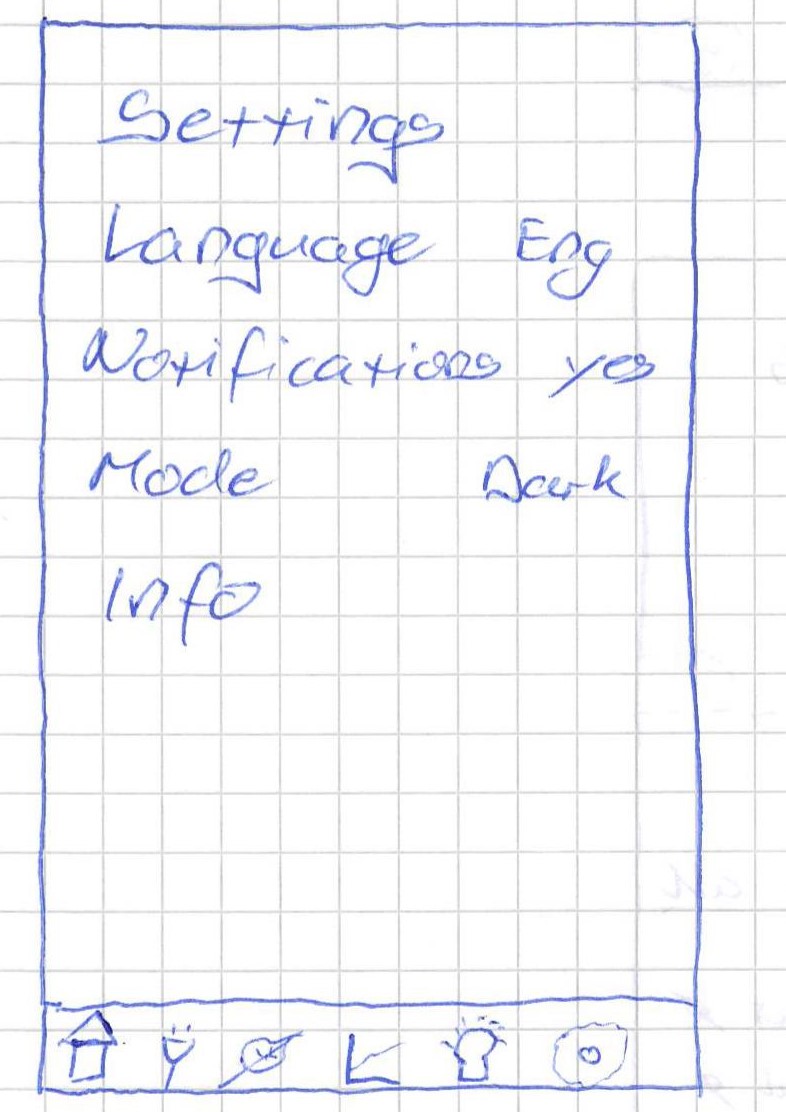 Settings
Language Eng
Notifications yes
Mode Dark
Info